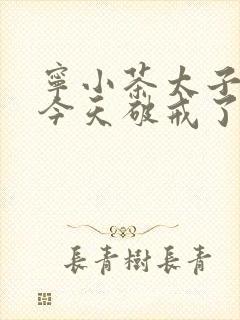 寧小茶太子
今天破戒了
長青樹長青